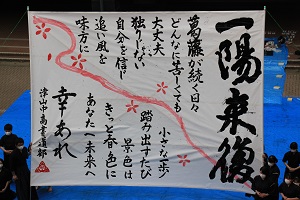 一陽来復
葛藤が続く日々
どんなに苦しくても
大丈夫
独りじゃない
自分を信じ
追い風を
味方に
小さな歩み
踏み出すたび
景色は
きっと春色に
あなたへ未来へ
幸あれ
津山高書道部